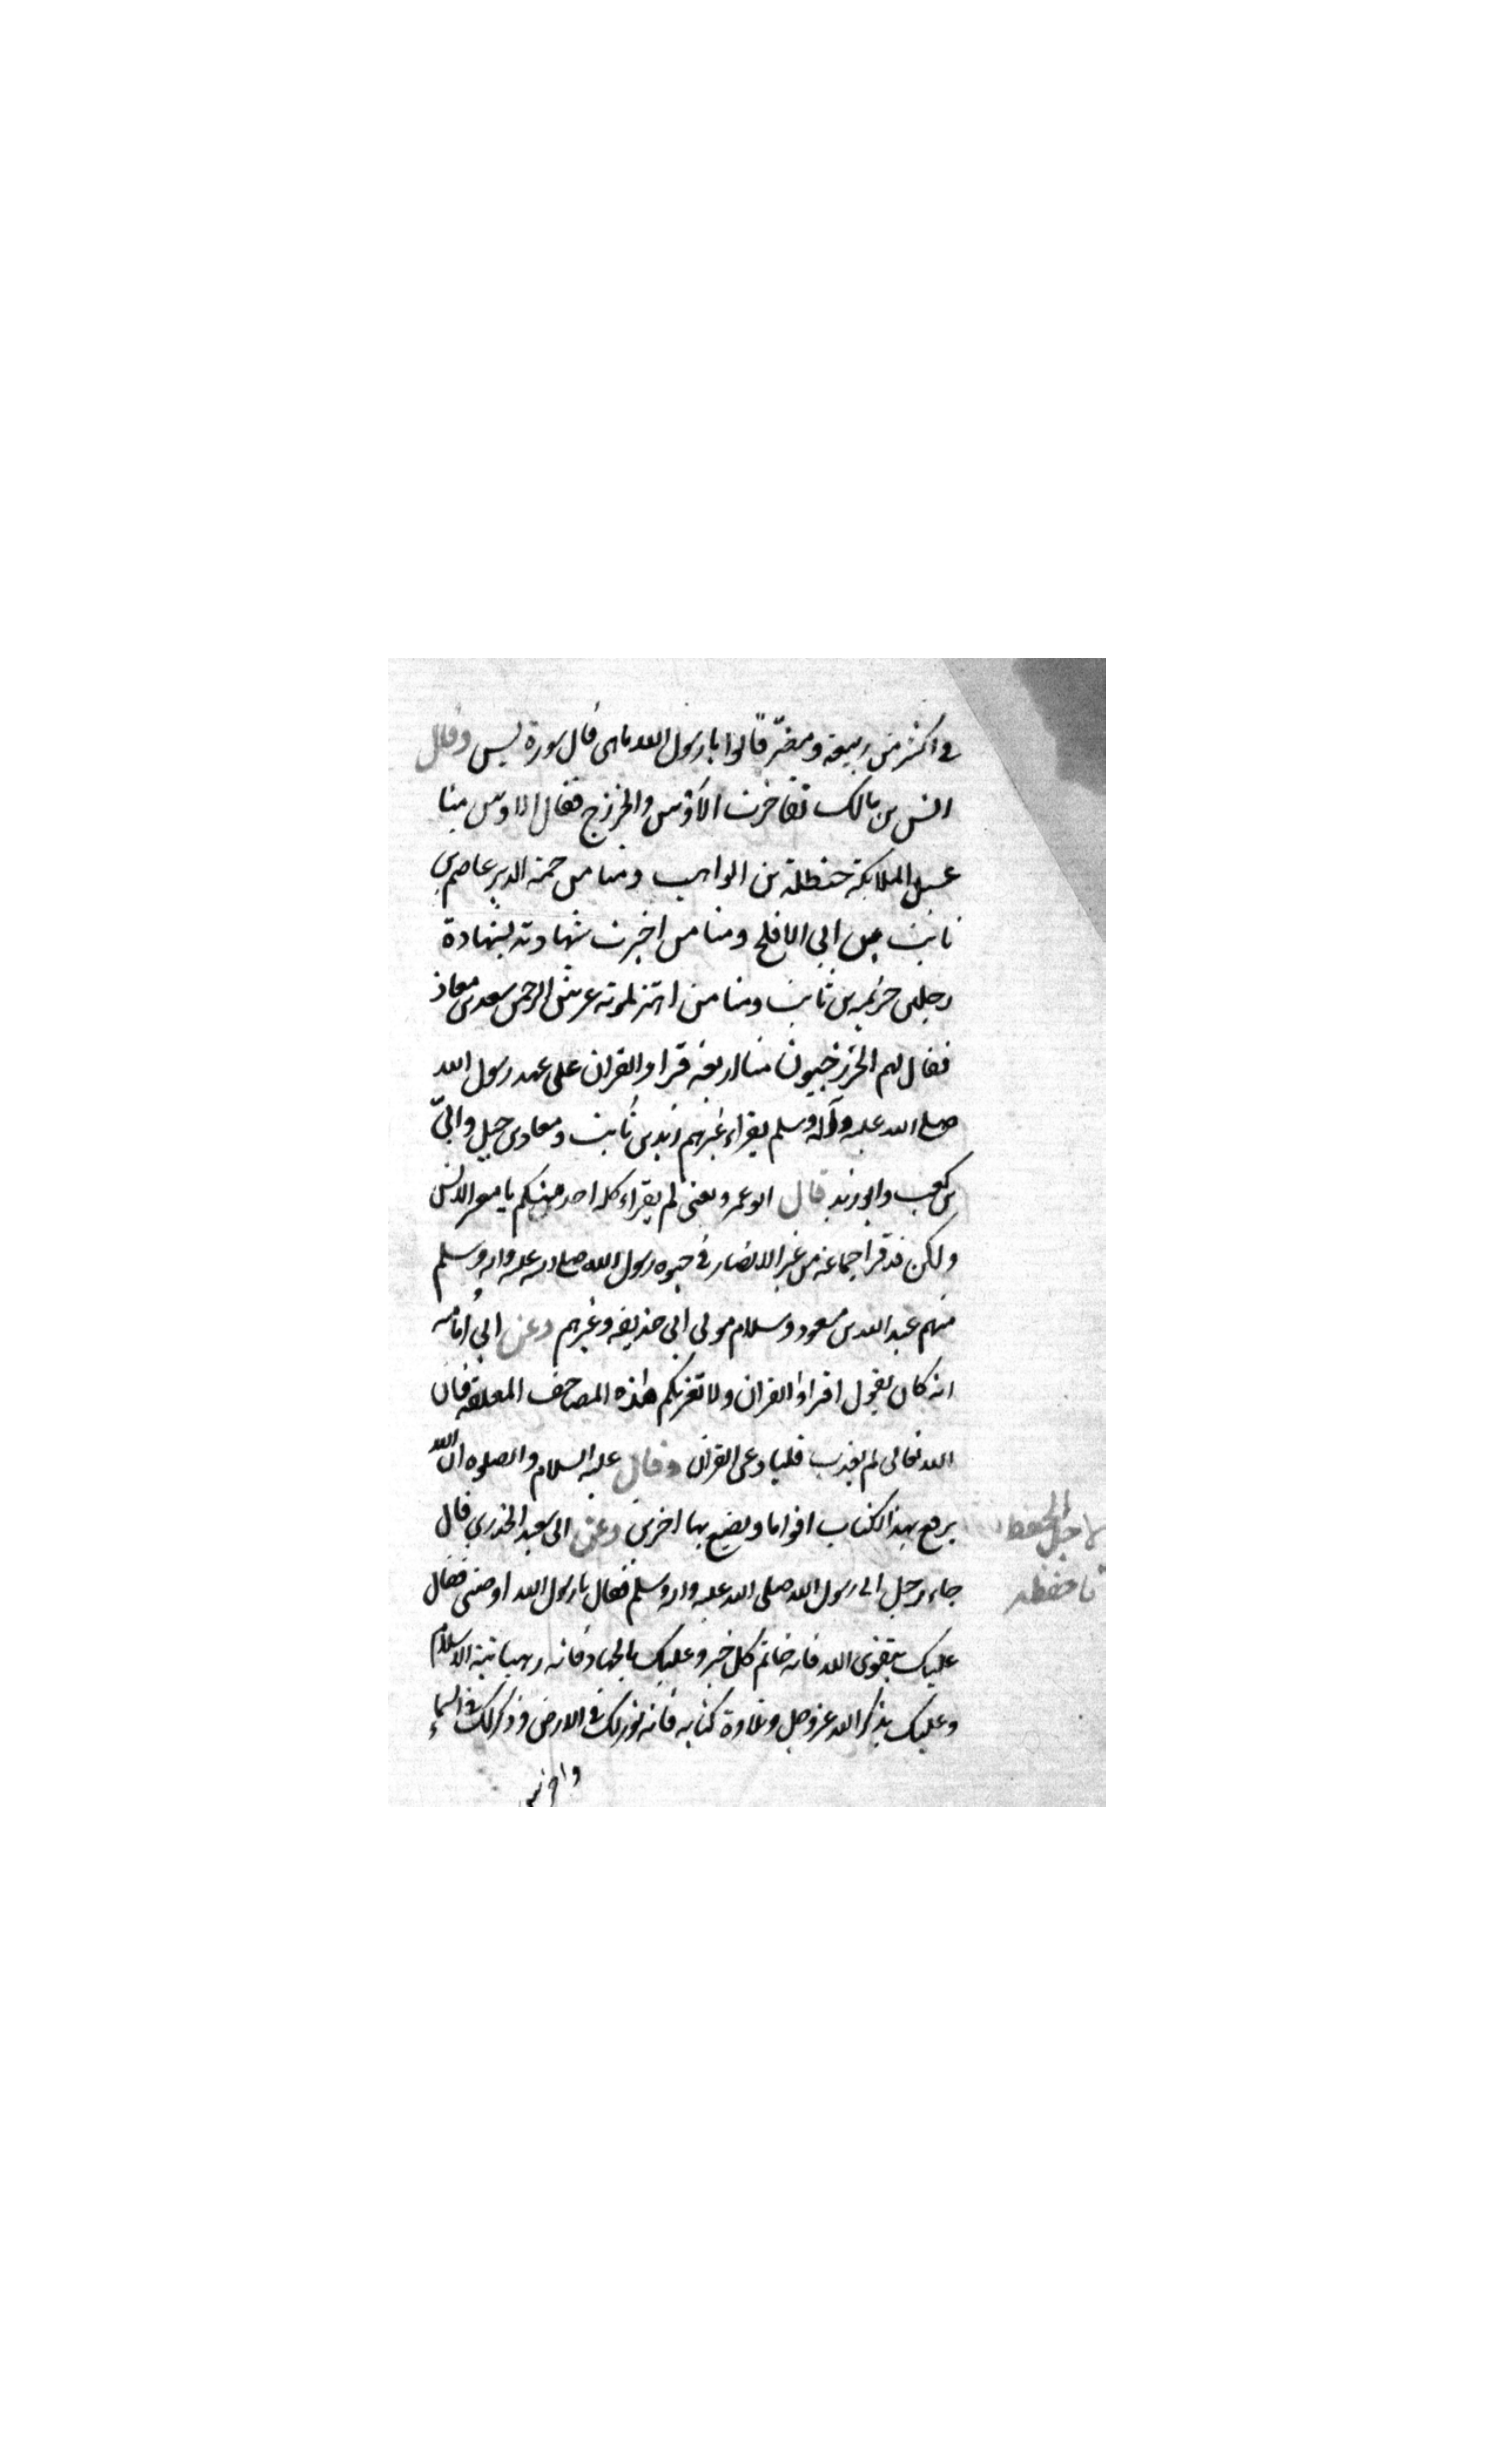 في اكثر من ربيعة ومضر قالوا يا رسول الله ماهي قال سورة يس وقال
انس بن مالك تفاخرت الاوس والخزرج فقال الاوس منا
غسيل الملايكة حنظلة بن الراهب ومنا من حمته الدبر عاصم بن
ثابت بن ابي الافلح ومنا من اجيزت شهادته بشهادة
رجلين خزيمه بن ثابت ومنا من اهتز لموته عرش الرحمن سعد بن معاذ
فقال لهم الخزرجيون منا اربعة قراوا القران على عهد رسول الله
صلى الله عليه وآله وسلم لم يقراه غيرهم زيد بن ثابت ومعاذ بن جبل وابيّ
بن كعب وابو زيد قال ابو عمرو يعني لم يقراه كله احد منكم يا معشر الاوس
ولكن قد قراه جماعة من غير الانصار في حيوه رسول الله صلى الله عليه واله وسلم
منهم عبد الله بن مسعود وسلام مولى ابي حذيفه وغيرهم وعن ابي امامه
انه كان يقول اقراوا القران ولا تغرنكم هذه المصاحف المعلقة فان
الله تعالى لم يعذب قلبا وعى القران وقال عليه السلام والصلوه ان الله
يرفع بهذا الكتاب اقواما ويضع بها اخرين وعن ابي سعيد الخدري قال
جاء رجل الى رسول الله صلى الله عليه واله وسلم فقال يا رسول الله اوصني فقال
عليك بتقوى الله فانه خاتم كل خير وعليك بالجهاد فانه رهبانية الاسلام
وعليك بذكر الله عز وجل وتلاوة كتابه فانه نور لك في الارض وذكر لك في السماء
لاجل الحفظ